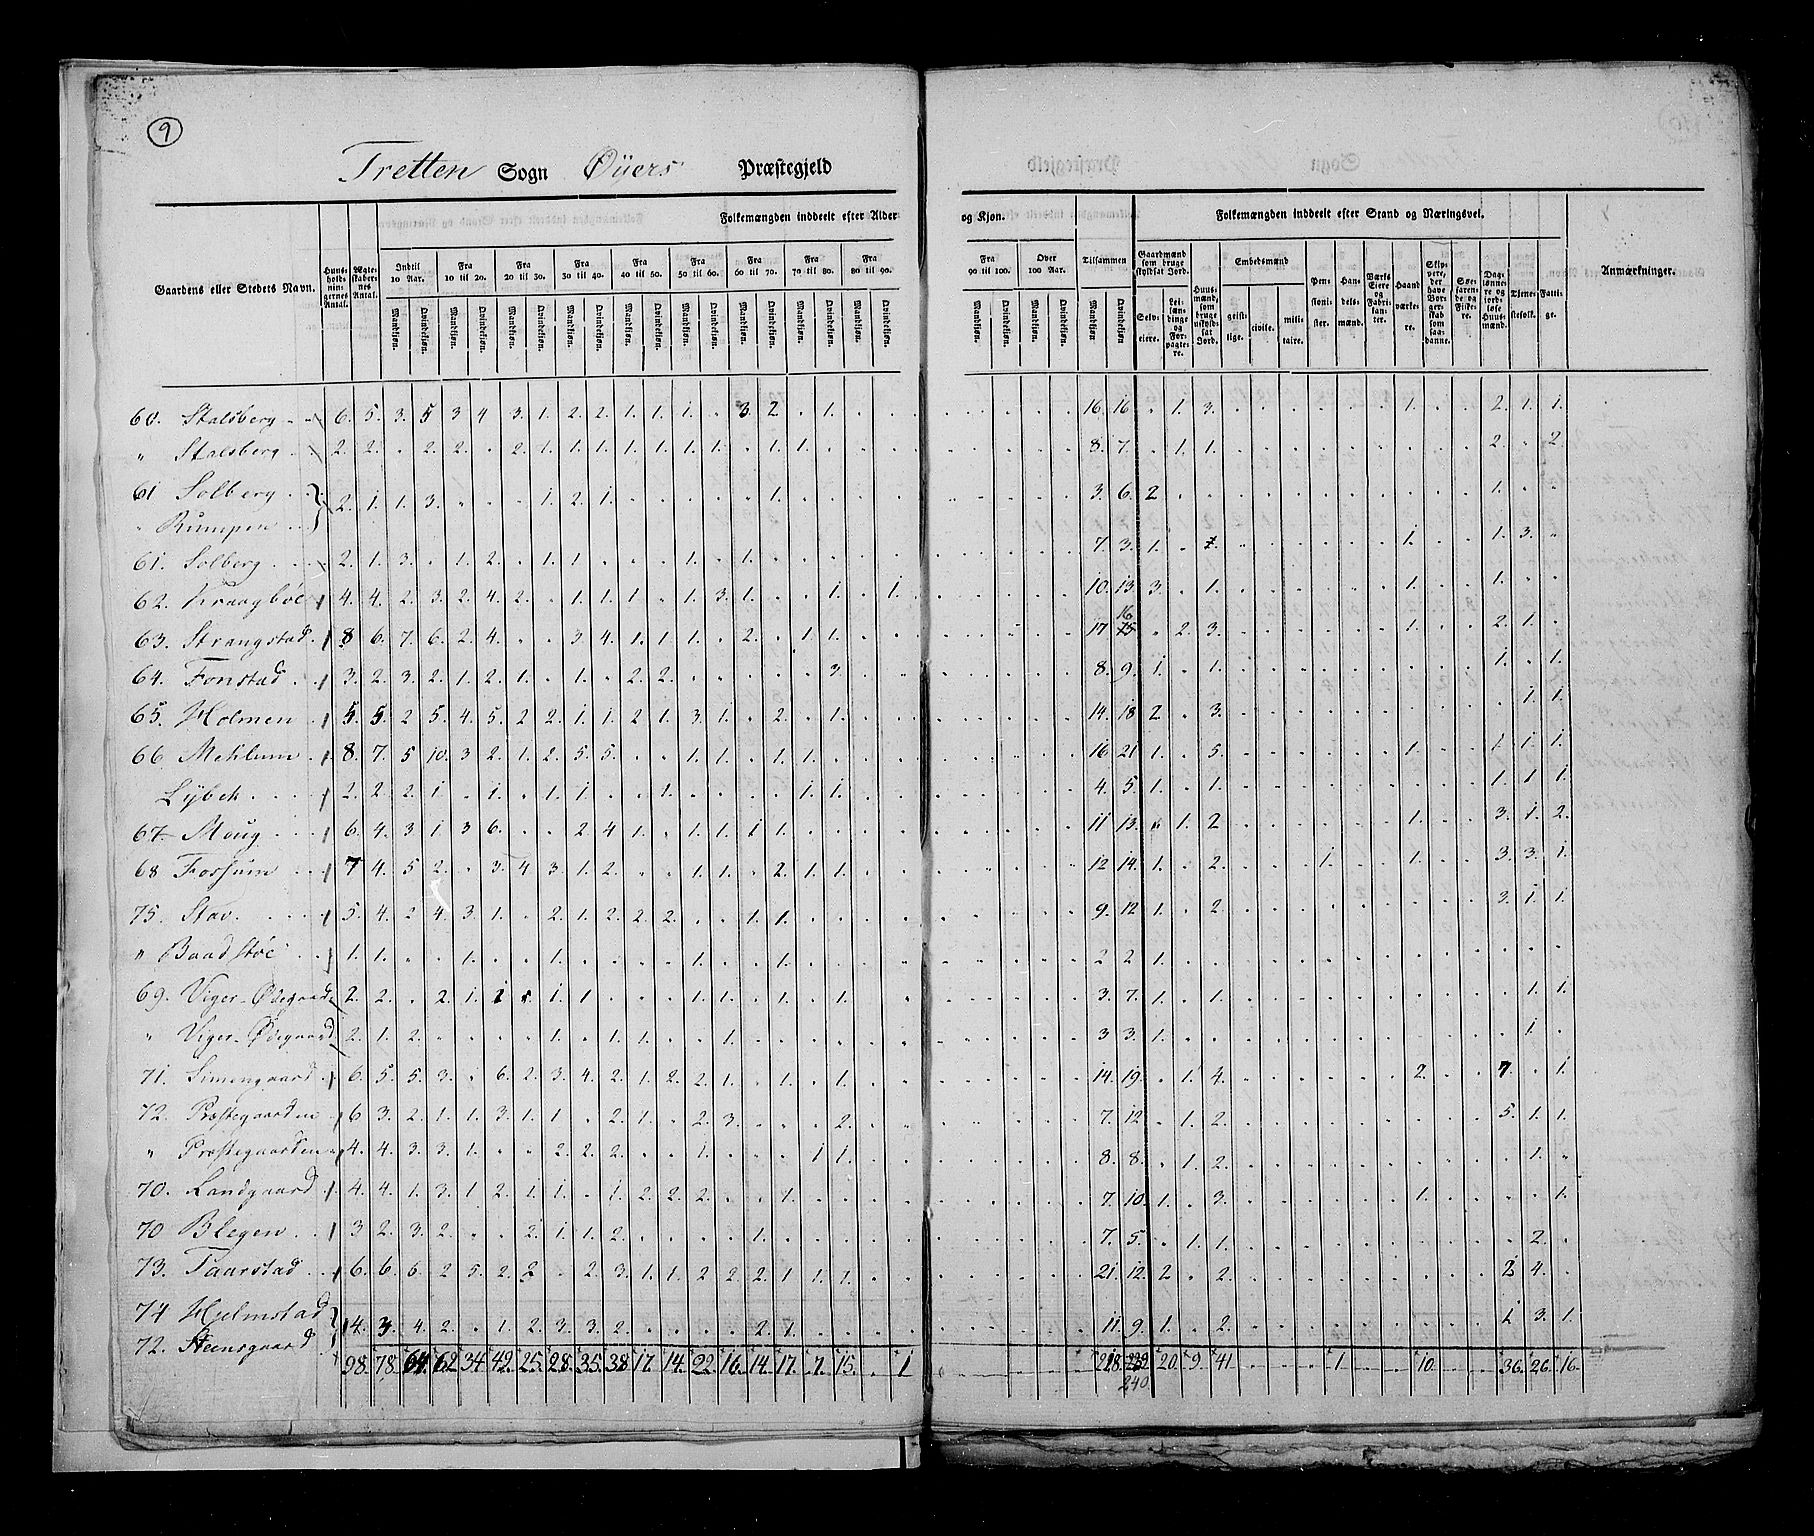 9
Tretten Sogn Øyers Præstegjeld
Folkemængden inddeelt efter Alder og Kjøn. Folkemængden inddeelt efter Stand og Næringsvei.
Gaardens eller Stedets Navn. Huusholdningernes Antal. Ægteskabernes Antal. Indtil 10 Aar. Fra 10 til 20. Fra 20 til 30. Fra 30 til 40. Fra 40 til 50. Fra 50 til 60. Fra 60 til 70. Fra 70 til 80. Fra 80 til 90. Fra 90 til 100. Over 100 Aar. Tilsammen Gaardmænd som bruge skyldsat Jord. Embedsmænd Anmærkninger.
Mandkjøn. Qvindekjøn. Selveiere. Leilændinge og Forpagtere. Huusmænd, som bruge uskyldsat Jord. geistlige. civile. militaire. Pensionister. Handelsmænd. Værks Eiere og Fabrikanter. Haandværkere. Skippere, der have Borgerskab som saadanne. Søefarende og Fiskere. Daglønnere og jordløse Huusmænd. Tjenestefolk. Fattige.
60. Stalsberg 6. 5. 3. 5 3 4 3. 1. 2. 2. 1. 1. 1. 3. 2. 1. 16. 16. 1. 3. 1. 2. 1. 1.
" Stalsberg 2. 2. 2. 2. 2. 1. 1. 1. 1. 1. 1. 1. 1. 1. 8. 7. 1. 1. 2. 2.
61 Solberg
" Rumpen 2. 1. 1. 3. 1. 2. 1. 1. 3. 6. 2. 1.
61. Solberg 2. 1. 3. 1. 2. 1. 1. 1. 1. 7. 3. 1. 1. 1. 3.
62. Kraagböe 4. 4. 2. 3. 2. 4. 2. 1. 1. 1 1. 3. 1. 1. 1. 10. 13. 3. 1. 1. 1.
63. Strangstad 8 6. 7. 6. 2 4. 3 4. 1. 1. 1. 2. 1. 1. 17 16 2. 3. 1. 2. 1.
64. Fonstad 3. 2. 3. 2. 1. 2. 1. 1. 2. 2. 3. 8. 9. 1. 1. 1. 1.
65. Holmen 5. 5. 2 5. 4. 5. 2 2. 1. 1. 2 1. 3. 1. 2. 1. 14. 18 2. 3. 1. 1.
66. Mehlum 8. 7. 5 10. 3 2. 1. 2. 5. 5. 1. 1. 1. 1. 16 21 1. 5. 1. 1. 1. 1.
Lybek 2. 2. 2. 1 1. 1. 1. 1. 1. 1. 4. 5. 1. 1. 1. 1. 1.
67 Moug 6. 4. 3 1. 3 6. 2 4 1. 1. 1. 1 1. 11 13. 1. 2 1. 3. 1. 2.
68 Fossum 7 4. 5 2. 3. 4 3. 1. 2. 1. 1. 2. 1. 1. 12 14. 1. 2. 1. 1. 3. 3. 1.
75. Stav 5. 4. 2 4. 3. 1. 2. 1. 2. 2. 2. 1. 1. 9. 12 1. 2. 3. 1. 1.
" Baadstöe 1. 1. 1. 1. 1. 1. 2 2 1.
69. Viger-Ødegaard 2. 2. 2. 1. 1 1. 1 1. 1. 1. 1. 3. 7. 1. 1. 1. 1.
" Viger-Ødegaard 2. 1. 2. 1. 1. 1. 1. 3 3. 1. 1.
71. Simengaard 6. 5. 5. 3. 6. 2. 3. 4. 2. 1. 2. 2. 1. 1. 1. 14. 19. 1. 4. 2. 7. 1.
72. Præstegaarden 6 3. 2. 1. 1. 3. 1. 1. 2. 1. 2. 3. 2. 7. 12 1. 2. 5. 1. 1.
" Præstegaarden 4. 4. 3. 3. 1. 2. 2. 2. 1. 1 1. 8. 8. 1. 2. 1.
70. Landgaard 4. 4. 1. 3. 1 2. 1. 1. 1. 2. 2. 2. 1. 7. 10. 1. 3. 1. 1.
70 Blegen 3 2. 3. 2. 2. 1. 1. 2. 1. 7. 5. 1. 1. 2.
73. Taarstad 6. 6. 6. 2 5. 2. 2 2. 3. 1. 1. 2 2. 2. 1 1. 1. 21. 12. 2 2. 2 4.
74 Hjelmstad
72. Steensgaard 4. 3. 4. 2. 1. 2. 3. 3. 2. 2. 1. 11. 9. 1. 2. 1 3. 1.
98. 78. 64. 62 34. 42. 25. 28. 35. 38 17. 14. 22. 16. 14. 17. 7. 15. 1 218. 239. 20. 9. 41 1. 10. 36. 26. 16.
240